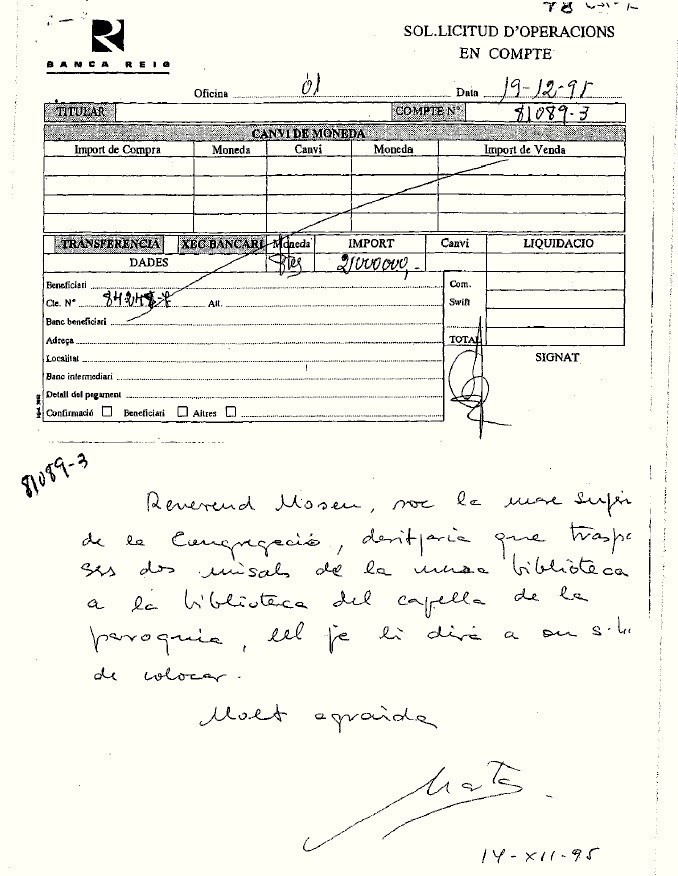 SOL.LICITUD D'OPERACIONS
EN COMPTE
BANCA REIG
Oficina 01 Data 19-12-95
TITULAR COMPTE N° 81089-3
CANVI DE MONEDA
Import de Compra Moneda Canvi Moneda Import de Venda
TRANSFERENCIA XEC BANCARI Moneda IMPORT Canvi LIQUIDACIO
DADES Ptes 2000000,-
Beneficiari Com.
Cte. N° Att. Swift
Banc beneficiari
Adreça TOTAL
Localitat SIGNAT
Banc intermediari
Detall del pagament
Confirmació Beneficiari Altres
81089-3
Reverend Mosen, soc la mare Super
de la Congregació, desitjaria que traspa
ses dos misals de la meva biblioteca
a la biblioteca del capella de la
paroquia, ell ja li dirà a on s'ha
de colocar.
Molt agraida
Marta.
14-XII-95